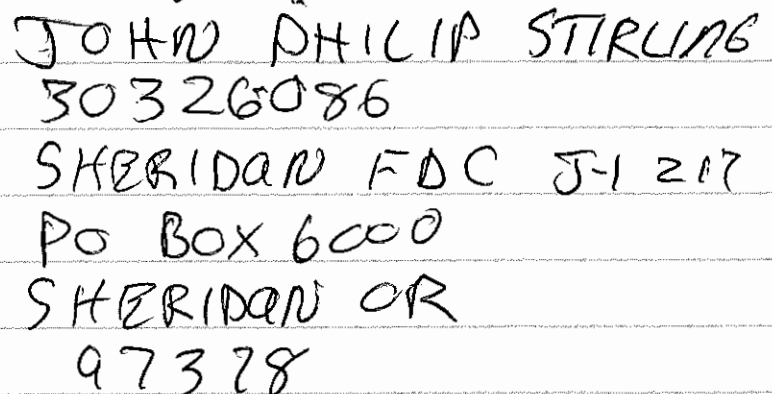 JOHN PHILIP STIRLING
30326086
SHERIDAN FDC J-1 217
PO BOX 6000
SHERIDAN OR
97378